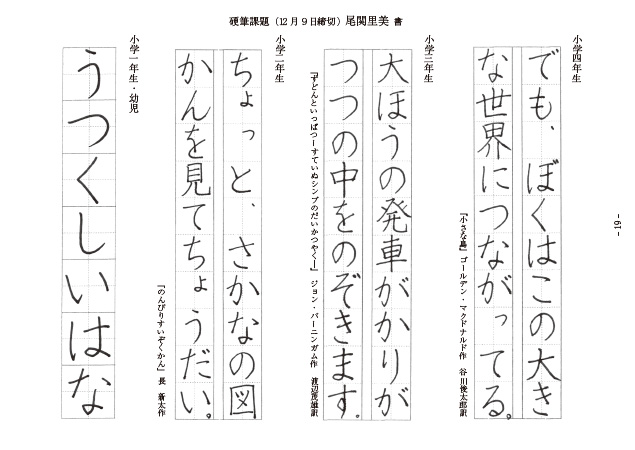 硬筆課題（12月9日締切）尾関里美 書
小学四年生
でも、ぼくはこの大き
な世界につながってる。
『小さな島』ゴールデン・マクドナルド作 谷川俊太郎訳
小学三年生
大ほうの発車がかりが
つつの中をのぞきます。
『ずどんといっぱつーすていぬシンプのだいかつやくー』 ジョン・バーニンガム作 渡辺茂雄訳
小学二年生
ちょっと、さかなの図
かんを見てちょうだい。
『のんびりすいぞくかん』長 新太作
小学一年生・幼児
うつくしいはな
- 19 -